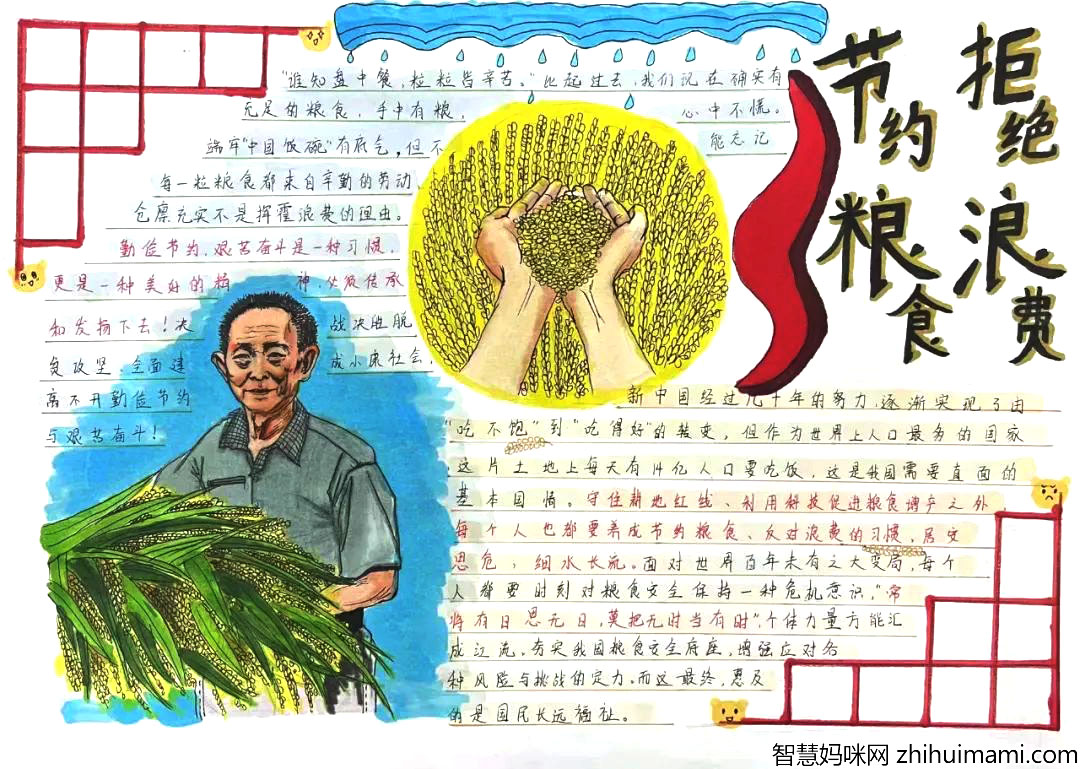 拒绝浪费
节约粮食
"谁知盘中餐,粒粒皆辛苦。"比起过去,我们现在确实有
充足的粮食,手中有粮,心中不慌。
端牢"中国饭碗"有底气,但不能忘记
每一粒粮食都来自辛勤的劳动,
仓廪充实不是挥霍浪费的理由。
勤俭节约、艰苦奋斗是一种习惯,
更是一种美好的精神,必须传承
和发扬下去!决战决胜脱
贫攻坚,全面建成小康社会,
离不开勤俭节约
与艰苦奋斗!
新中国经过几十年的努力,逐渐实现了由
"吃不饱"到"吃得好"的转变,但作为世界上人口最多的国家
这片土地上每天有14亿人口要吃饭,这是我国需要直面的
基本国情。守住耕地红线、利用科技促进粮食增产之外
每个人也都要养成节约粮食、反对浪费的习惯,居安
思危,细水长流。面对世界百年未有之大变局,每个
人都要时刻对粮食安全保持一种危机意识,"常
将有日思无日,莫把无时当有时",个体力量方能汇
成江流,夯实我国粮食安全底座,增强应对各
种风险与挑战的定力。而这最终,惠及
的是国民长远福祉。
智慧妈咪网 zhihuimami.com